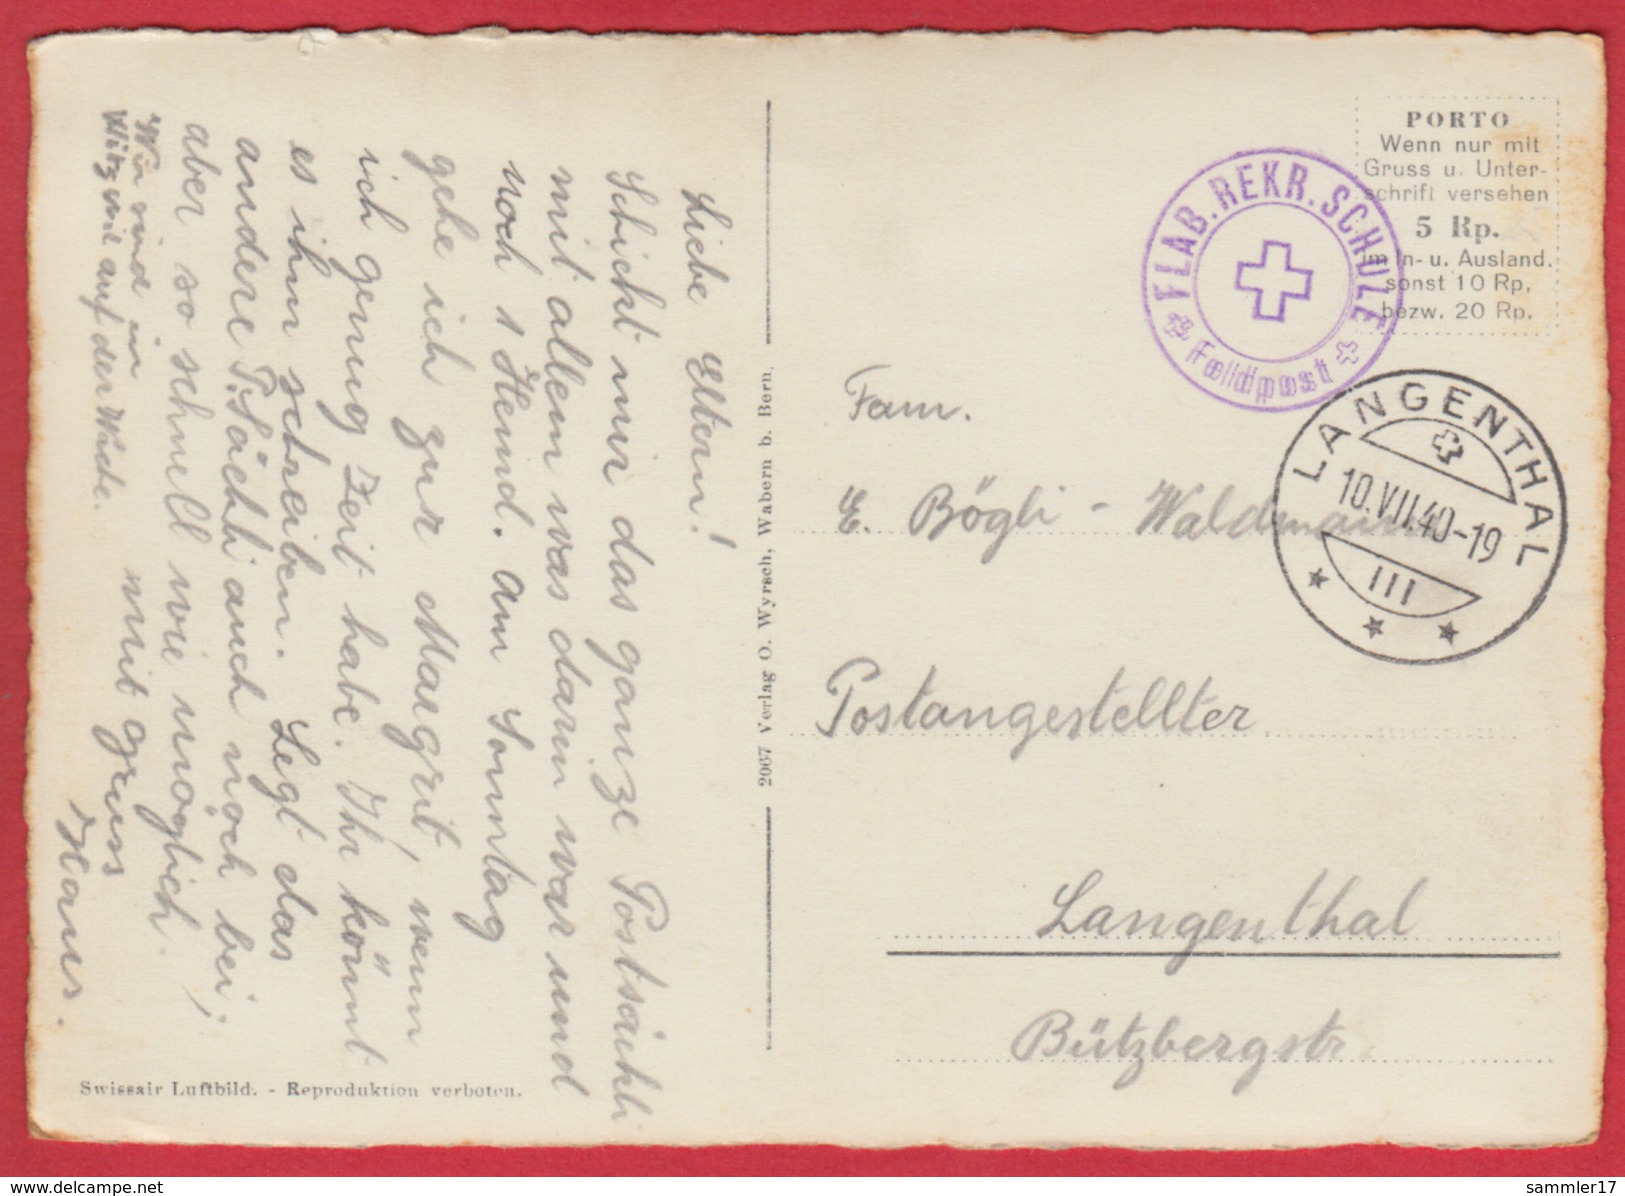 Liebe Eltern!
Schickt mir das ganze Postsächli
mit allem was darin war und
noch 1 Hemd. Am Sonntag
gehe ich zur Margrit, wenn
ich genug Zeit habe. Ihr könnt
es ihm schreiben. Legt das
andere P. Sächli auch noch bei,
aber so schnell wie möglich.
Wir sind in
Witzwil auf der Wache.
mit Gruss
Hans.
Swissair Luftbild. - Reproduktion verboten.
2067 Verlag O. Wyrsch, Wabern b. Bern.
PORTO
Wenn nur mit
Gruss u. Unter-
schrift versehen
5 Rp.
im In- u. Ausland.
sonst 10 Rp,
bezw. 20 Rp.
FLAB. REKR. SCHULE
Feldpost
LANGENTHAL
10.VII.40-19
III
Fam.
E. Bögli - Waldmann
Postangestellter
Langenthal
Bützbergstr.
delcampe.net
sammler17